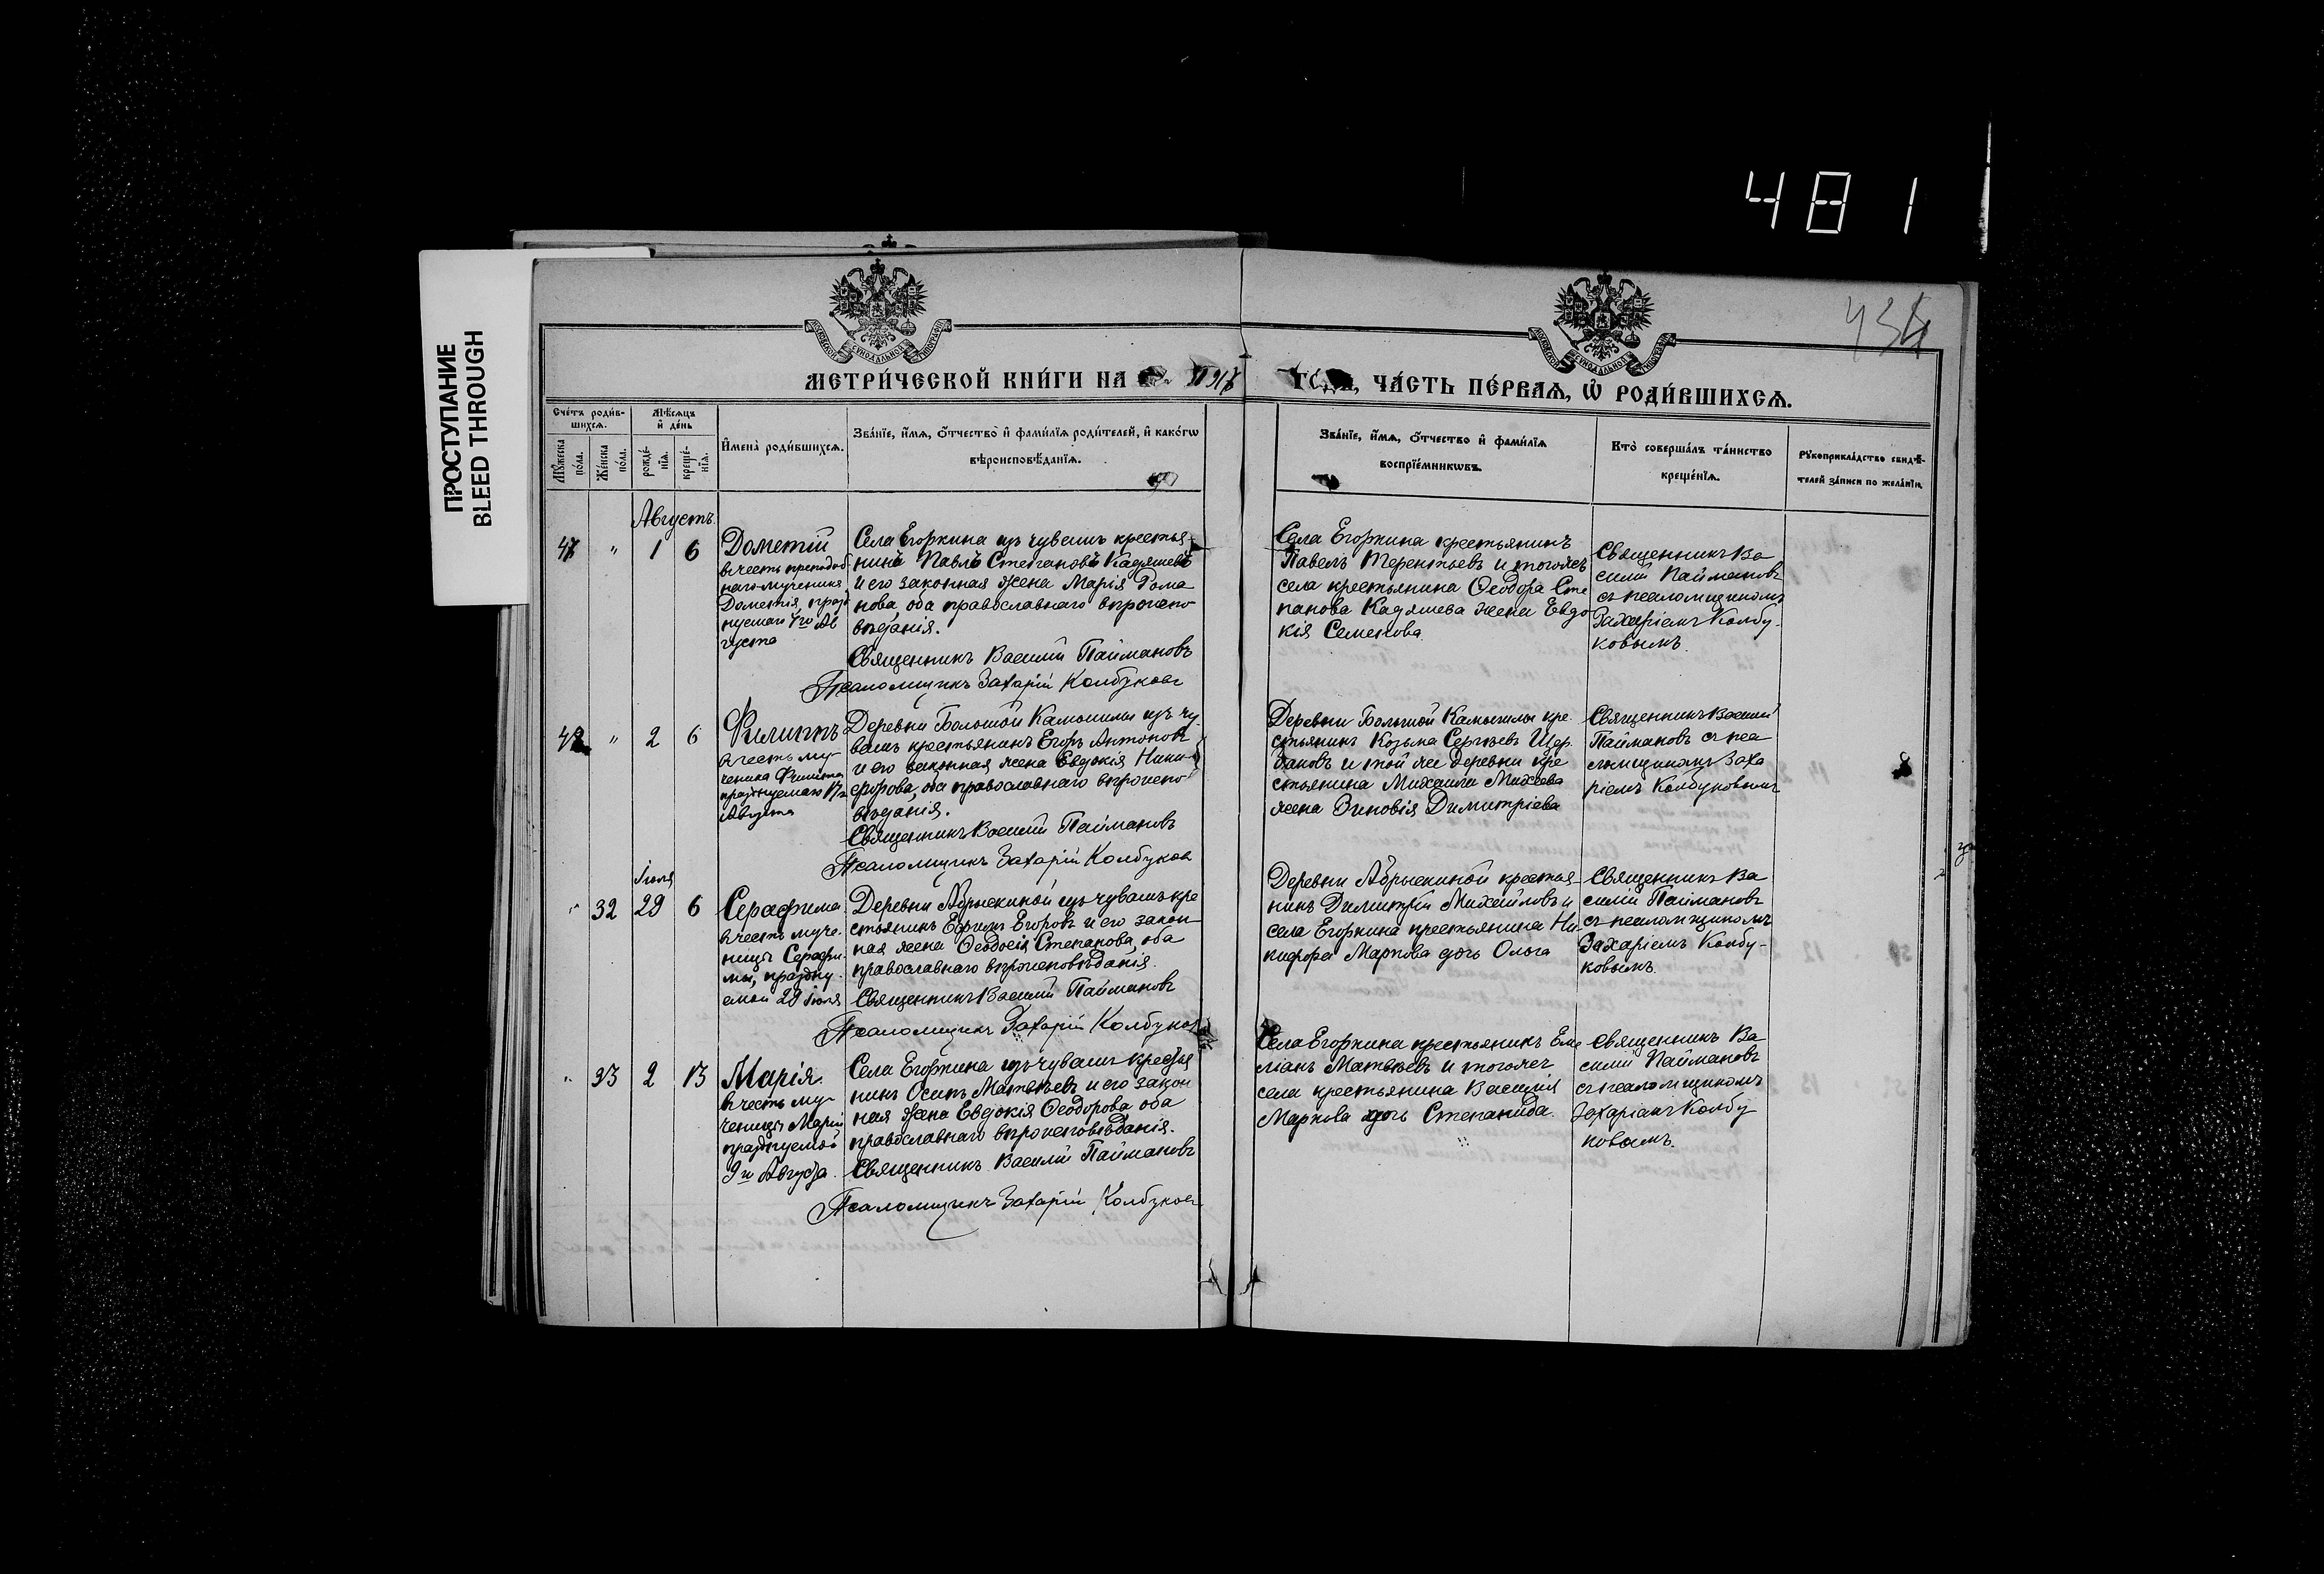 481
ПРОСТУПАНИЕ
BLEED THROUGH
434
МЕТРИ́ЧЕСКОЙ КНИ́ГИ НА
ЧА́СТЬ ПЕ́РВАѦ, Ѡ҆ РОДИ́ВШИХСѦ.
Сче́тъ роди́в-
шихсѧ.
Мѣ́сѧцъ
и҆ де́нь
Мꙋ́жеска
по́ла.
Же́нска
по́ла.
рожде́-
нїѧ.
креще́-
нїѧ.
И҆мена̀ роди́вшихсѧ.
Зва́нїе, и҆́мѧ, ѻ҆́тчество и҆ фами́лїѧ роди́телей, и҆ како́гѡ
вѣроисповѣ́данїѧ.
Зва́нїе, и҆́мѧ, ѻ҆́тчество и҆ фами́лїѧ
воспрїе́мникѡвъ.
Кто̀ соверша́лъ та́инство
креще́нїѧ.
Рꙋкоприкла́дство свидѣ́-
телей за́писи по жела́нїю.
Августъ
47 " 1 6
Дометій
въ честь преподоб
наго-мученика
Дометія, празд
нуемаго 7го Ав
густа
Села Егоркина изъ чувашъ крестья
нинъ Павлъ Степановъ Кадяшевъ
и его законная жена Марія Рома
нова, оба православнаго вѣроиспо
вѣданія.
Священникъ Василій Паймановъ
Псаломщикъ Захарій Колбуковъ
Села Егоркина крестьянинъ
Павелъ Терентьевъ и тогожъ
села крестьянина Ѳеодора Сте
панова Кадяшева жена Евдо
кія Семенова
Священникъ Ва
силій Паймановъ
съ псаломщикомъ
Захаріемъ Колбу-
ковымъ.
48 " 2 6
Филиппъ
въ честь му
ченика Филиппа
празднуемаго
Августа
Деревни Большой Камышлы изъ чу
вашъ крестьянинъ Егоръ Антоновъ
и его законная жена Евдокія Ники
форова, оба православнаго вѣроиспо
вѣданія.
Священникъ Василій Паймановъ
Псаломщикъ Захарій Колбуковъ
Деревни Большой Камышлы кре
стьянинъ Козьма Сергѣевъ Щер
баковъ и той же деревни кре
стьянина Михаила Михѣева
жена Зиновія Димитріева
Священникъ Василій
Паймановъ съ пса
ломщикомъ Заха
ріемъ Колбуковымъ
Іюля
" 32 29 6
Серафима
въ честь муче-
ницы Серафи-
мы, праздну
емой 29 Іюля
Деревни Абрыскиной изъ чувашъ кре
стьянинъ Ефримъ Егоровъ и его закон
ная жена Ѳеодосія Степанова, оба
православнаго вѣроисповѣданія.
Священникъ Василій Паймановъ
Псаломщикъ Захарій Колбуковъ
Деревни Абрыскиной крестья-
нинъ Димитрій Михайловъ и
села Егоркина крестьянина Ни
кифора Маркова дочь Ольга
Священникъ Ва
силій Паймановъ
съ псаломщикомъ
Захаріемъ Колбу-
ковымъ.
" 33 2 13
Марія.
въ честь му-
ченицы Маріи
празднуемой
9го Августа.
Села Егоркина изъ чувашъ крестья
нинъ Осипъ Матвѣевъ и его закон
ная жена Евдокія Ѳеодорова оба
православнаго вѣроисповѣданія.
Священникъ Василій Паймановъ
Псаломщикъ Захарій Колбуковъ
Села Егоркина крестьянинъ Еме
ліанъ Матвѣевъ и тогожъ
села крестьянина Василія
Маркова дочь Степанида.
Священникъ Ва
силій Паймановъ
съ псаломщикомъ
Захаріемъ Колбу
ковымъ.